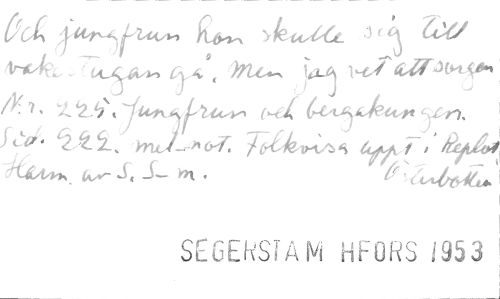 Och jungfrun hon skulle sig till
vakestugan gå. Men jag vet att sorgen
N:r. 225. Jungfrun och bergakungen.
Sid. 222. mel-not. Folkvisa uppt i Replot,
Harm. av S. S-m. Österbotten
SEGERSTAM HFORS 1953